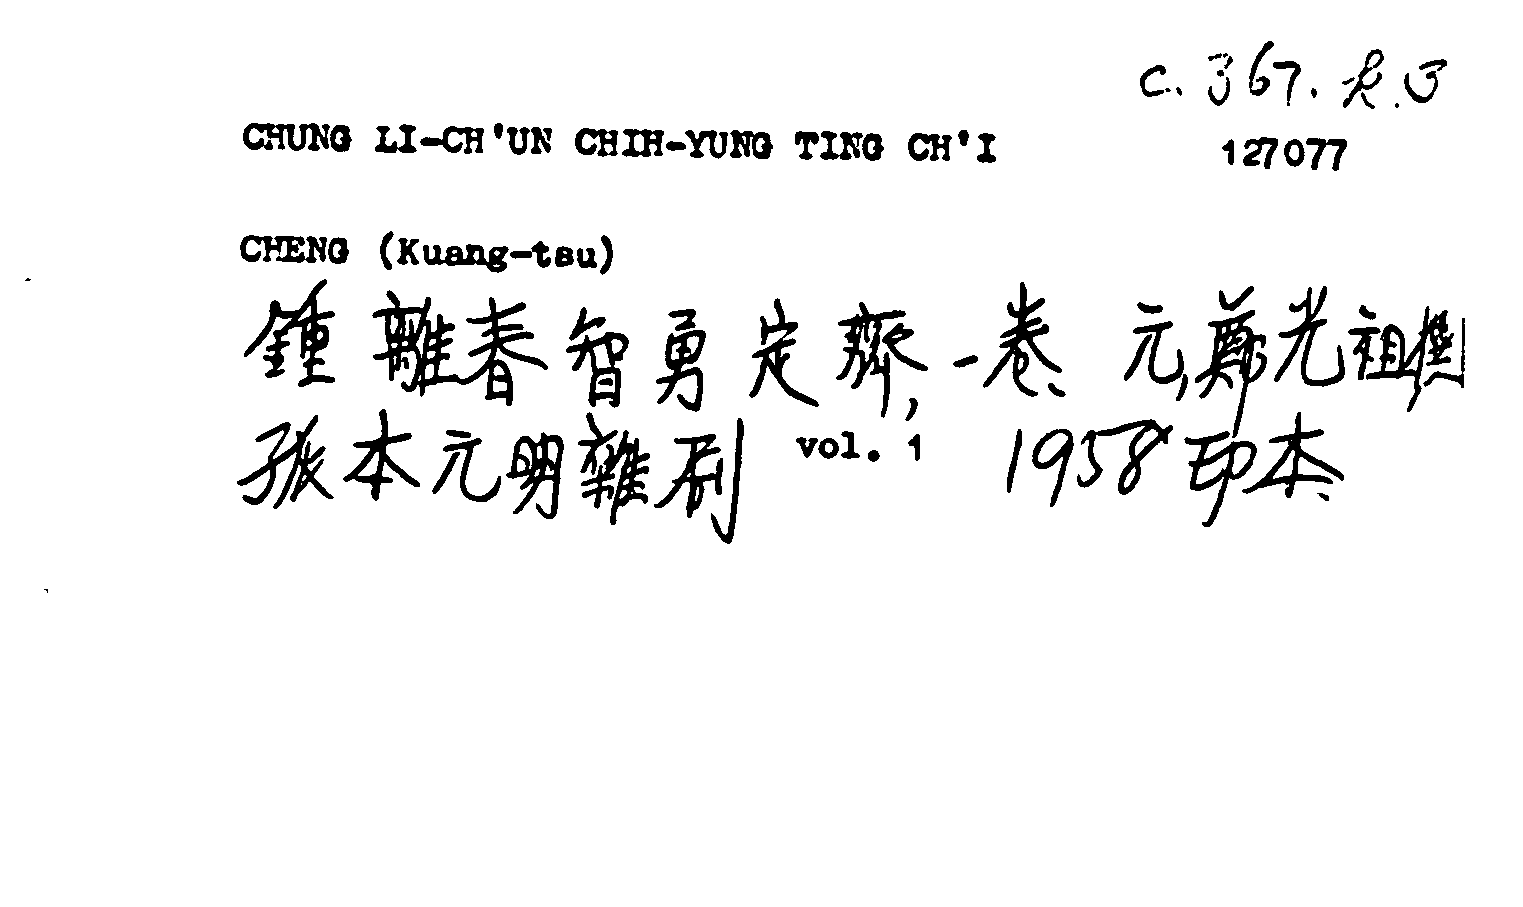 C. 367. l. 3
CHUNG LI-CH'UN CHIH-YUNG TING CH'I 127077
CHENG (Kuang-tsu)
鍾離春智勇定齊,一卷、元,鄭光祖撰
孤本元明雜剧 vol. 1 1958印本.